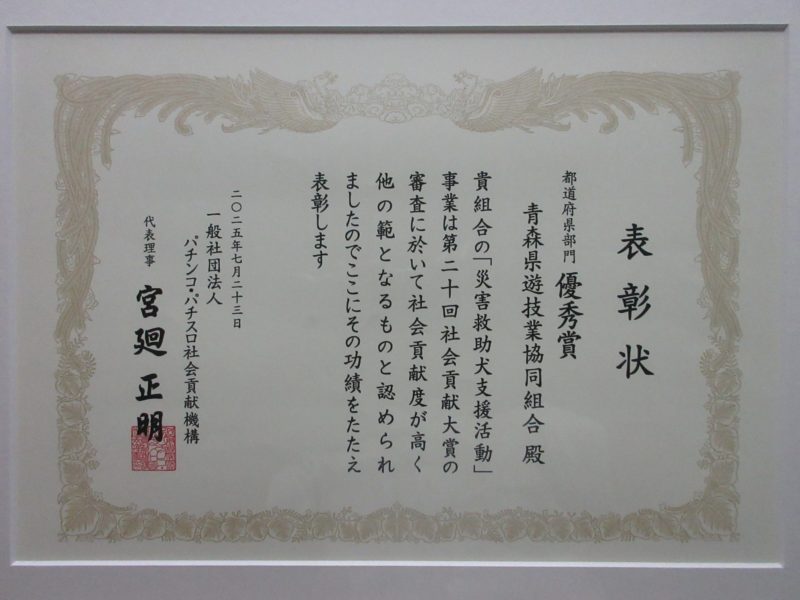 表彰状
都道府県部門 優秀賞
青森県遊技業協同組合 殿
貴組合の「災害救助犬支援活動」
事業は第二十回社会貢献大賞の
審査に於いて社会貢献度が高く
他の範となるものと認められ
ましたのでここにその功績をたたえ
表彰します
二〇二五年七月二十三日
一般社団法人
パチンコ・パチスロ社会貢献機構
代表理事 宮廻 正明